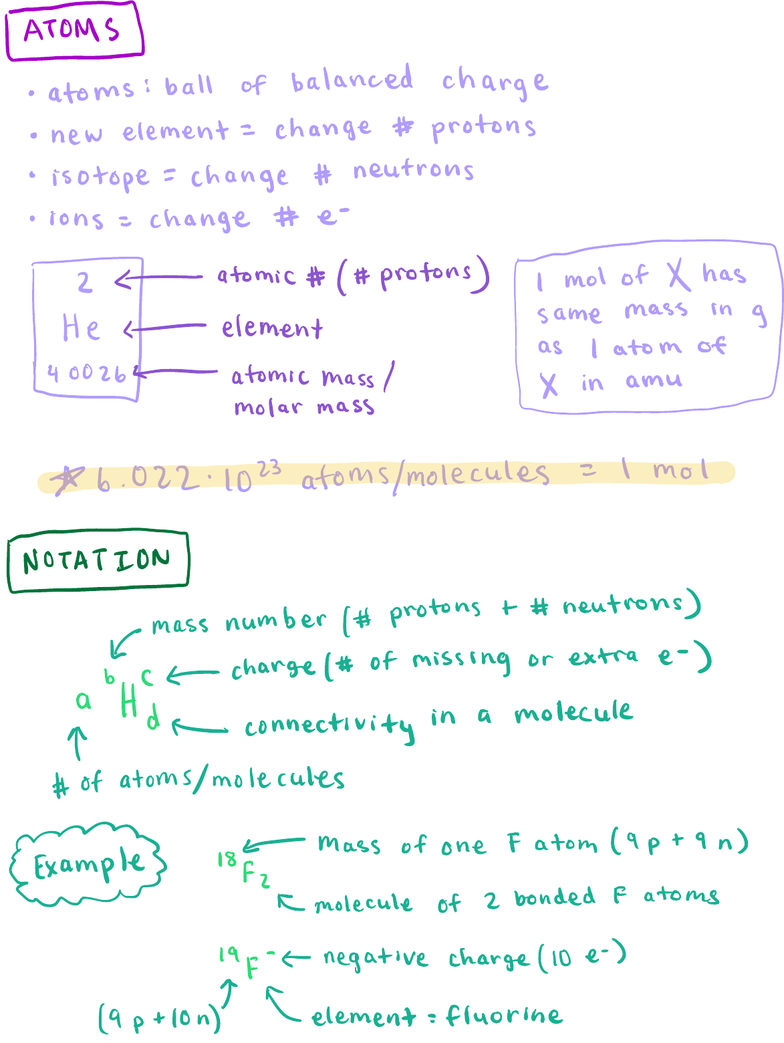 ATOMS
• atoms: ball of balanced charge
• new element = change # protons
• isotope = change # neutrons
• ions = change # e⁻
2 ← atomic # (# protons)
He ← element
4 0026 ← atomic mass/
molar mass
1 mol of X has
same mass in g
as 1 atom of
X in amu
☆ 6.022·10²³ atoms/molecules = 1 mol
NOTATION
mass number (# protons + # neutrons)
charge (# of missing or extra e⁻)
a ᵇHᶜ d
connectivity in a molecule
# of atoms/molecules
Example
mass of one F atom (9 p + 9 n)
¹⁸F₂
molecule of 2 bonded F atoms
¹⁹F⁻ ← negative charge (10 e⁻)
(9 p + 10 n)
element = fluorine